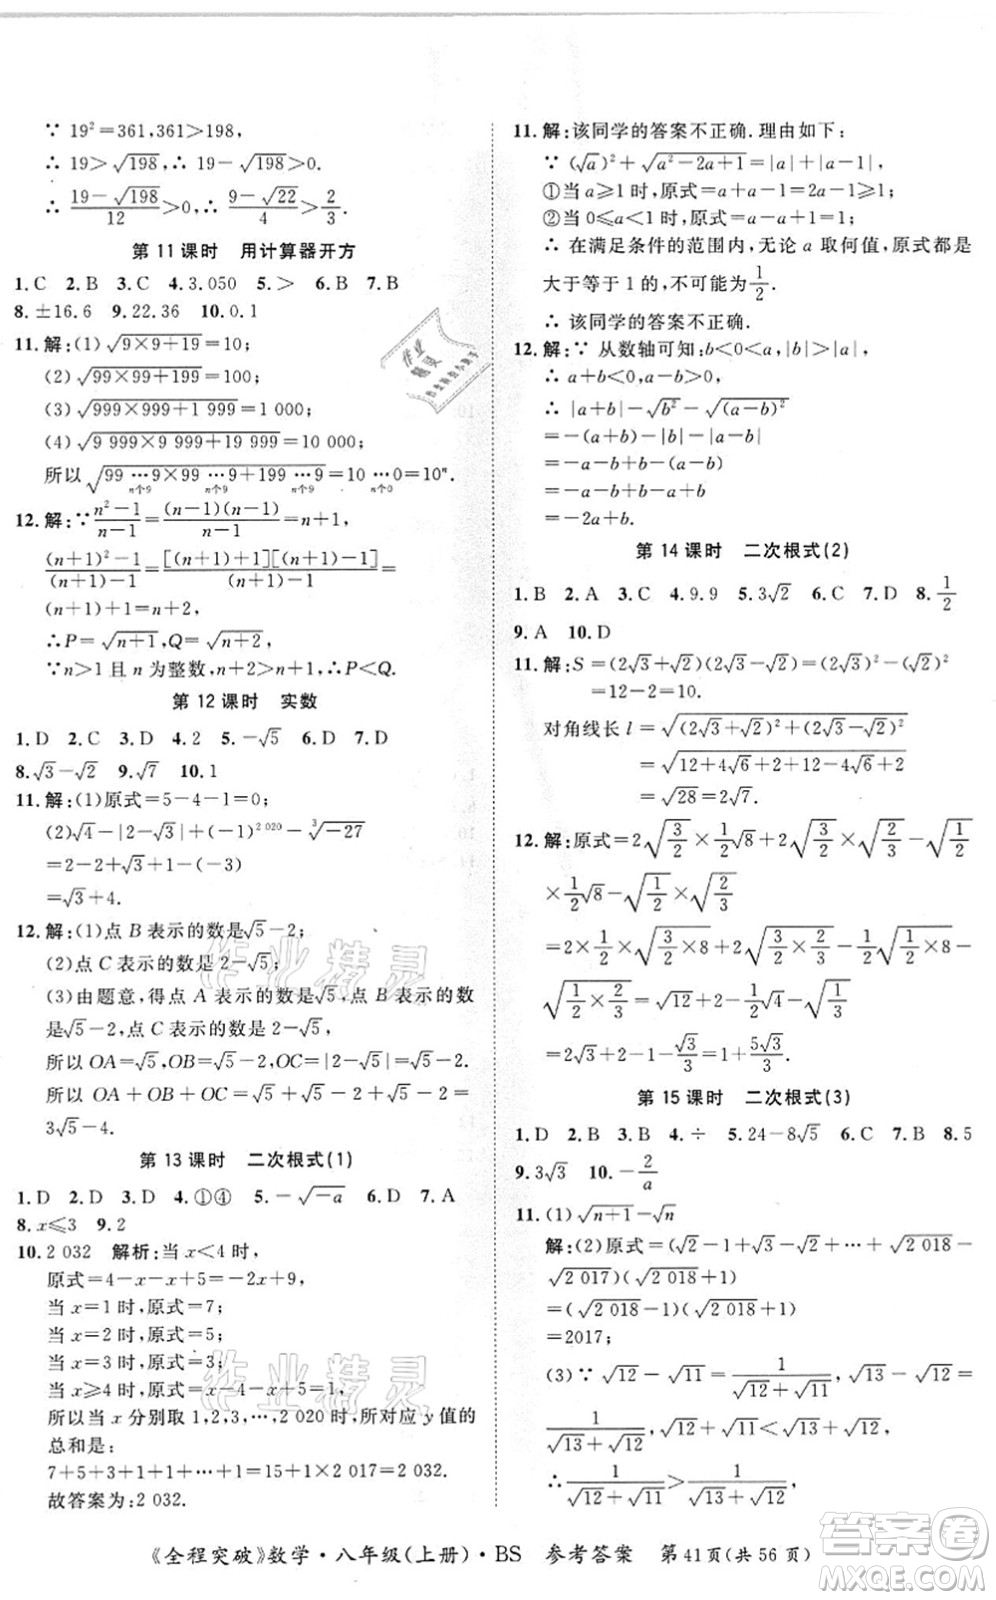 ∵ 19²=361,361>198,
∴ 19>√198,∴ 19-√198>0.
∴ (19-√198)/12>0,∴ (9-√22)/4>2/3.
第 11 课时　用计算器开方
1.C　2.B　3.C　4.3.050　5.>　6.B　7.B
8.±16.6　9.22.36　10.0.1
11.解:(1)√(9×9+19)=10;
(2)√(99×99+199)=100;
(3)√(999×999+1 999)=1 000;
(4)√(9 999×9 999+19 999)=10 000.
所以√(99…9×99…9+199…9)=10…0=10ⁿ.
n个9　n个9　n个9　n个0
12.解:∵(n²-1)/(n-1)=(n+1)(n-1)/(n-1)=n+1,
((n+1)²-1)/((n+1)-1)=[(n+1)+1][(n+1)-1]/((n+1)-1)=
(n+1)+1=n+2,
∴P=√(n+1),Q=√(n+2).
∵n>1 且 n 为整数,∴n+2>n+1,∴P<Q.
第 12 课时　实数
1.D　2.C　3.D　4.2　5.-√5　6.D　7.D
8.√3-√2　9.√7　10.1
11.解:(1)原式=5-4-1=0;
(2)√4-|2-√3|+(-1)²⁰²⁰-³√-27
=2-2+√3+1+3
=√3+4.
12.解:(1)点 B 表示的数是√5-2.
(2)点 C 表示的数是 2-√5.
(3)由题意,得点 A 表示的数是√5,点 B 表示的数
是√5-2,点 C 表示的数是 2-√5,
所以 OA=√5,OB=√5-2,OC=|2-√5|=√5-2.
所以 OA+OB+OC=√5+√5-2+√5-2=
3√5-4.
第 13 课时　二次根式(1)
1.D　2.D　3.D　4.①④　5.-√-a　6.D　7.A
8.x⩽3　9.2
10.2 032　解析:当 x<4 时,
原式=4-x-x+5=-2x+9,
当 x=1 时,原式=7;
当 x=2 时,原式=5;
当 x=3 时,原式=3;
当 x⩾4 时,原式=x-4-x+5=1,
所以当 x 分别取 1,2,3,…,2 020 时,所对应 y 值的
总和是:
7+5+3+1+1+…+1=15+1×2 017=2 032.
故答案为:2 032.
11.解:该同学的答案不正确.理由如下:
∵ (√a)²+√(a²-2a+1)=|a|+|a-1|,
①当 a⩾1 时,原式=a+a-1=2a-1⩾1;
②当 0⩽a<1 时,原式=a-a+1=1;
∴ 在满足条件的范围内,无论 a 取何值,原式都是
大于等于 1 的,不可能是1/2.
∴ 该同学的答案不正确.
12.解:∵ 从数轴可知:b<0<a,|b|>|a|,
∴ a+b<0,a-b>0,
∴ |a+b|-√b²-√(a-b)²
=-(a+b)-|b|-|a-b|
=-a-b-(-b)-(a-b)
=-a-b+b-a+b
=-2a+b.
第 14 课时　二次根式(2)
1.B　2.A　3.C　4.9.9　5.3√2　6.C　7.D　8.1/2
9.A　10.D
11.解:S=(2√3+√2)(2√3-√2)=(2√3)²-(√2)²
=12-2=10.
对角线长 l=√((2√3+√2)²+(2√3-√2)²)
=√(12+4√6+2+12-4√6+2)
=√28=2√7.
12.解:原式=2√(3/2)×1/2√8+2√(3/2)×√(2/3)-√(1/2)
×1/2√8-√(1/2)×√(2/3)
=2×1/2√(3/2×8)+2√(3/2×2/3)-1/2√(1/2×8)-
√(1/2×2/3)=√12+2-1/2√4-√(1/3)
=2√3+2-1-√3/3=1+5√3/3.
第 15 课时　二次根式(3)
1.D　2.B　3.B　4.÷　5.24-8√5　6.C　7.B　8.5
9.3√3　10.-2/a
11.(1)√(n+1)-√n
解:(2)原式=(√2-1+√3-√2+…+√2 018-
√2 017)(√2 018+1)
=(√2 018-1)(√2 018+1)
=2017;
(3)∵ √12-√11=1/(√12+√11),√13-√12=
1/(√13+√12),√13-√12<√12-√11,
∴1/(√12+√11)>1/(√13+√12).
《全程突破》数学·八年级(上册)·BS　参考答案　第 41页(共 56 页)
作业精灵
作业精灵
作业精灵
答案圈
MXQE.COM